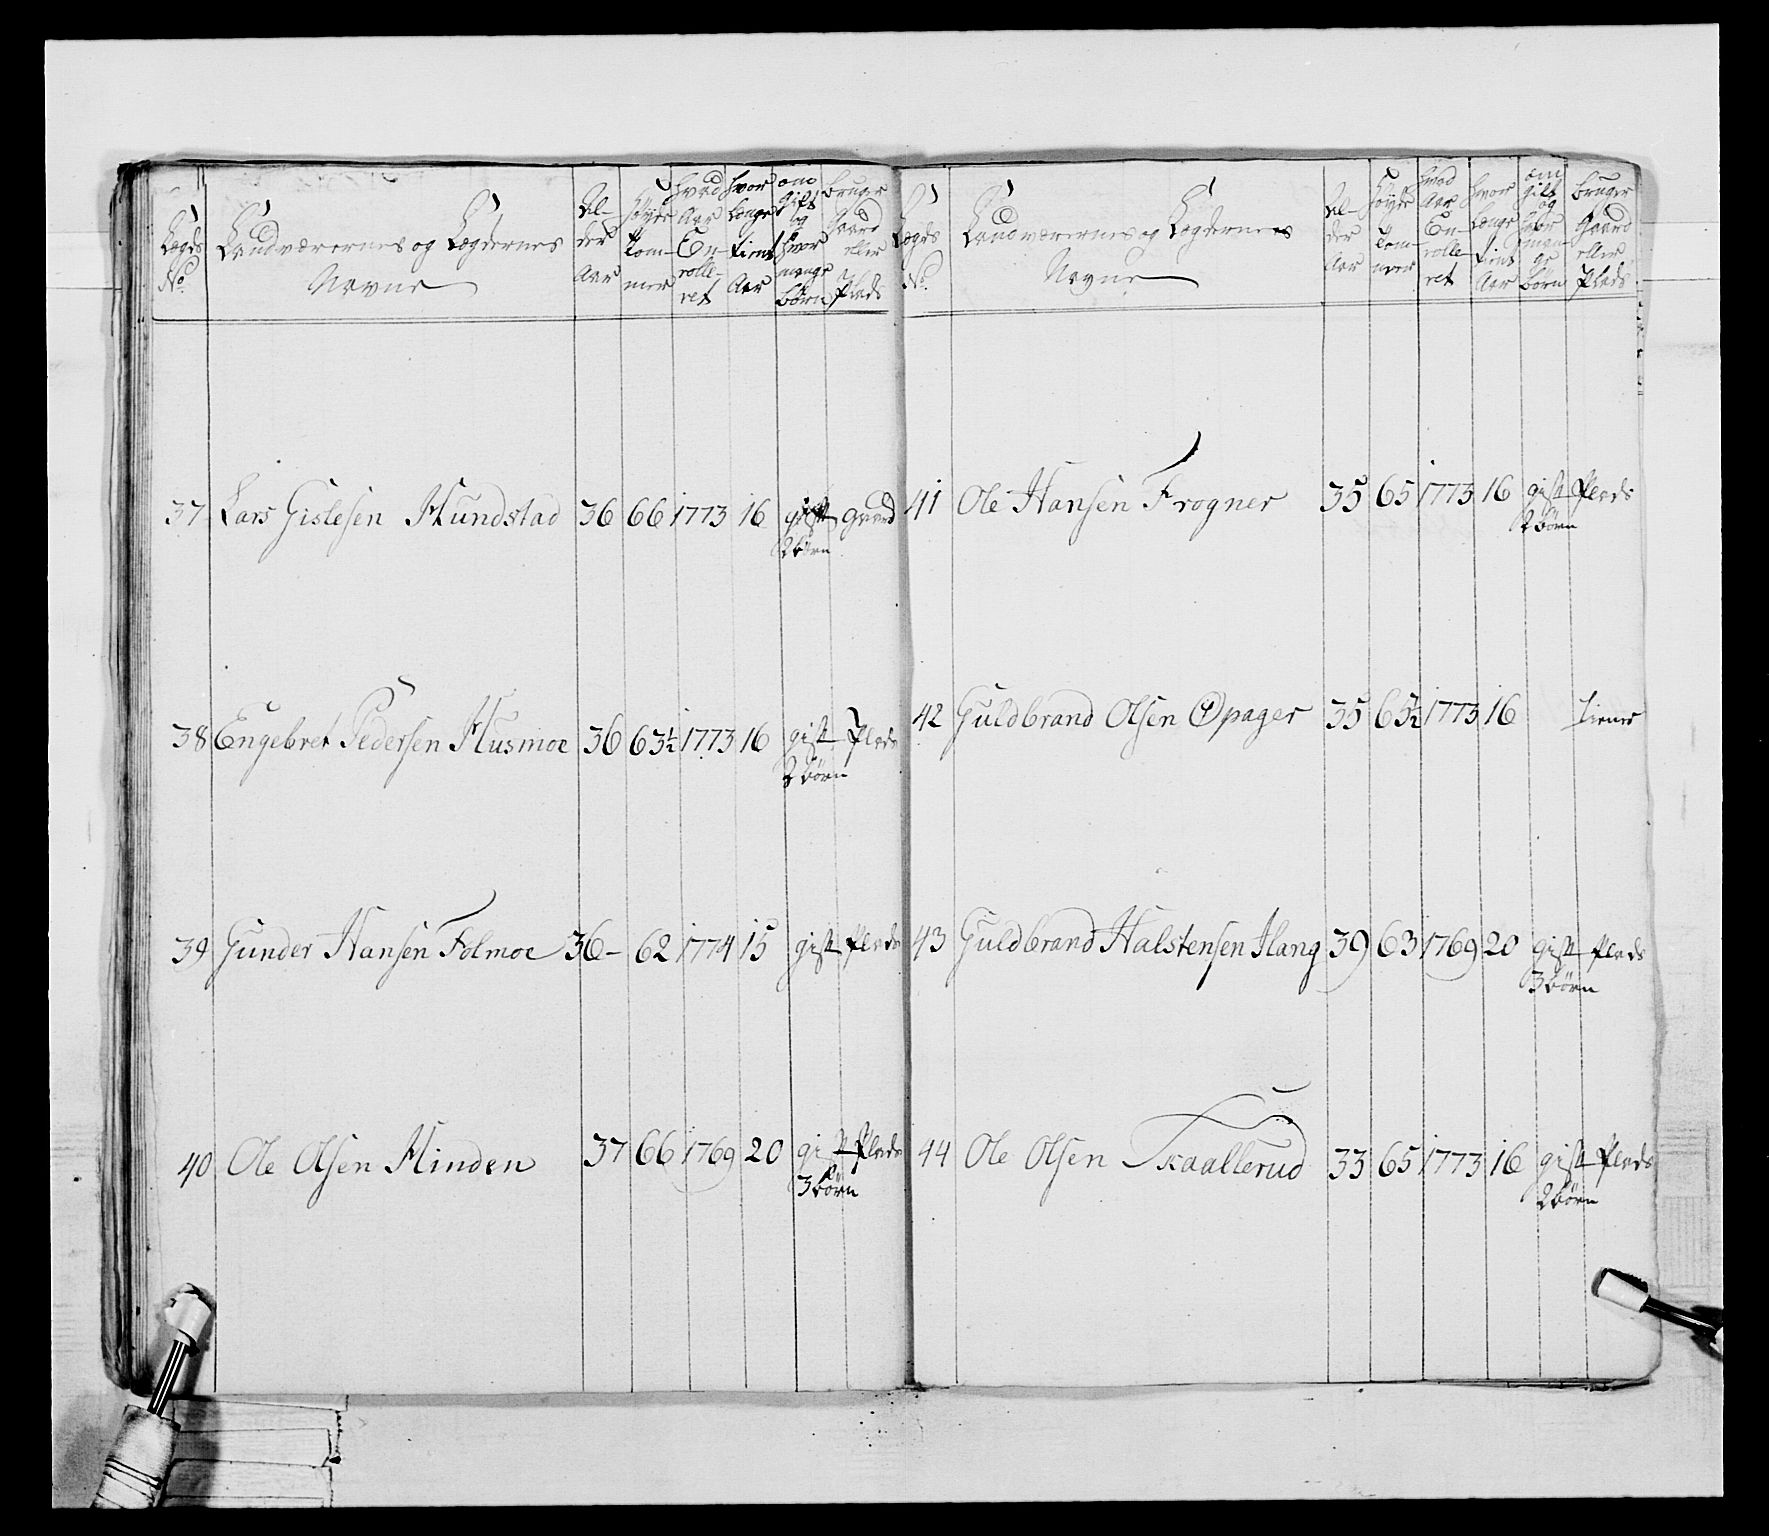 Lægds No.
Landværernes og Lægdernes Navne
Al-
der
Aar
Høyde
Tom-
mer
hvad
Aar
En-
rolle-
ret
hvor
længe
tient
Aar
om
Gift
og
hvor
mange
børn
bruger
Gaard
eller
Plads
37 Lars Gislesen Hundstad 36 66 1773 16 gift Gaard
2 børn
38 Engebret Pedersen Husmoe 36 63½ 1773 16 gift Plads
2 børn
39 Gunder Hansen Folmoe 36- 62 1774 15 gift Plads
40 Ole Olsen Hinden 37 66 1769 20 gift Plads
3 børn
Lægds No.
Landværernes og Lægdernes Navne
Al-
der
Aar
Høyde
Tom-
mer
hvad
Aar
En-
rolle-
ret
hvor
længe
tient
Aar
om
Gift
og
hvor
man-
ge
børn
bruger
Gaard
eller
Plads
41 Ole Hansen Frogner 35 65 1773 16 gift Plads
2 børn
42 Guldbrand Olsen Opager 35 65½ 1773 16 tiener
43 Guldbrand Halstensen Ilang 39 63 1769 20 gift Plads
3 børn
44 Ole Olsen Skaallerud 33 65 1773 16 gift Plads
2 børn